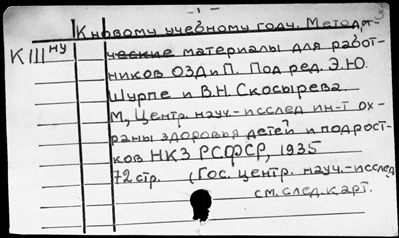 - 1 -
К новому учебному году. Методи-
КIII ну ческие материалы для работ-
ников ОЗДиП. Под ред. Э.Ю.
Шурпе и В.Н. Скосырева.
М, Центр. науч.-исслед ин-т ох-
раны здоровья детей и подрост-
ков НКЗ РСФСР, 1935
72 стр. (Гос. центр. науч.-исслед
см. след. карт.